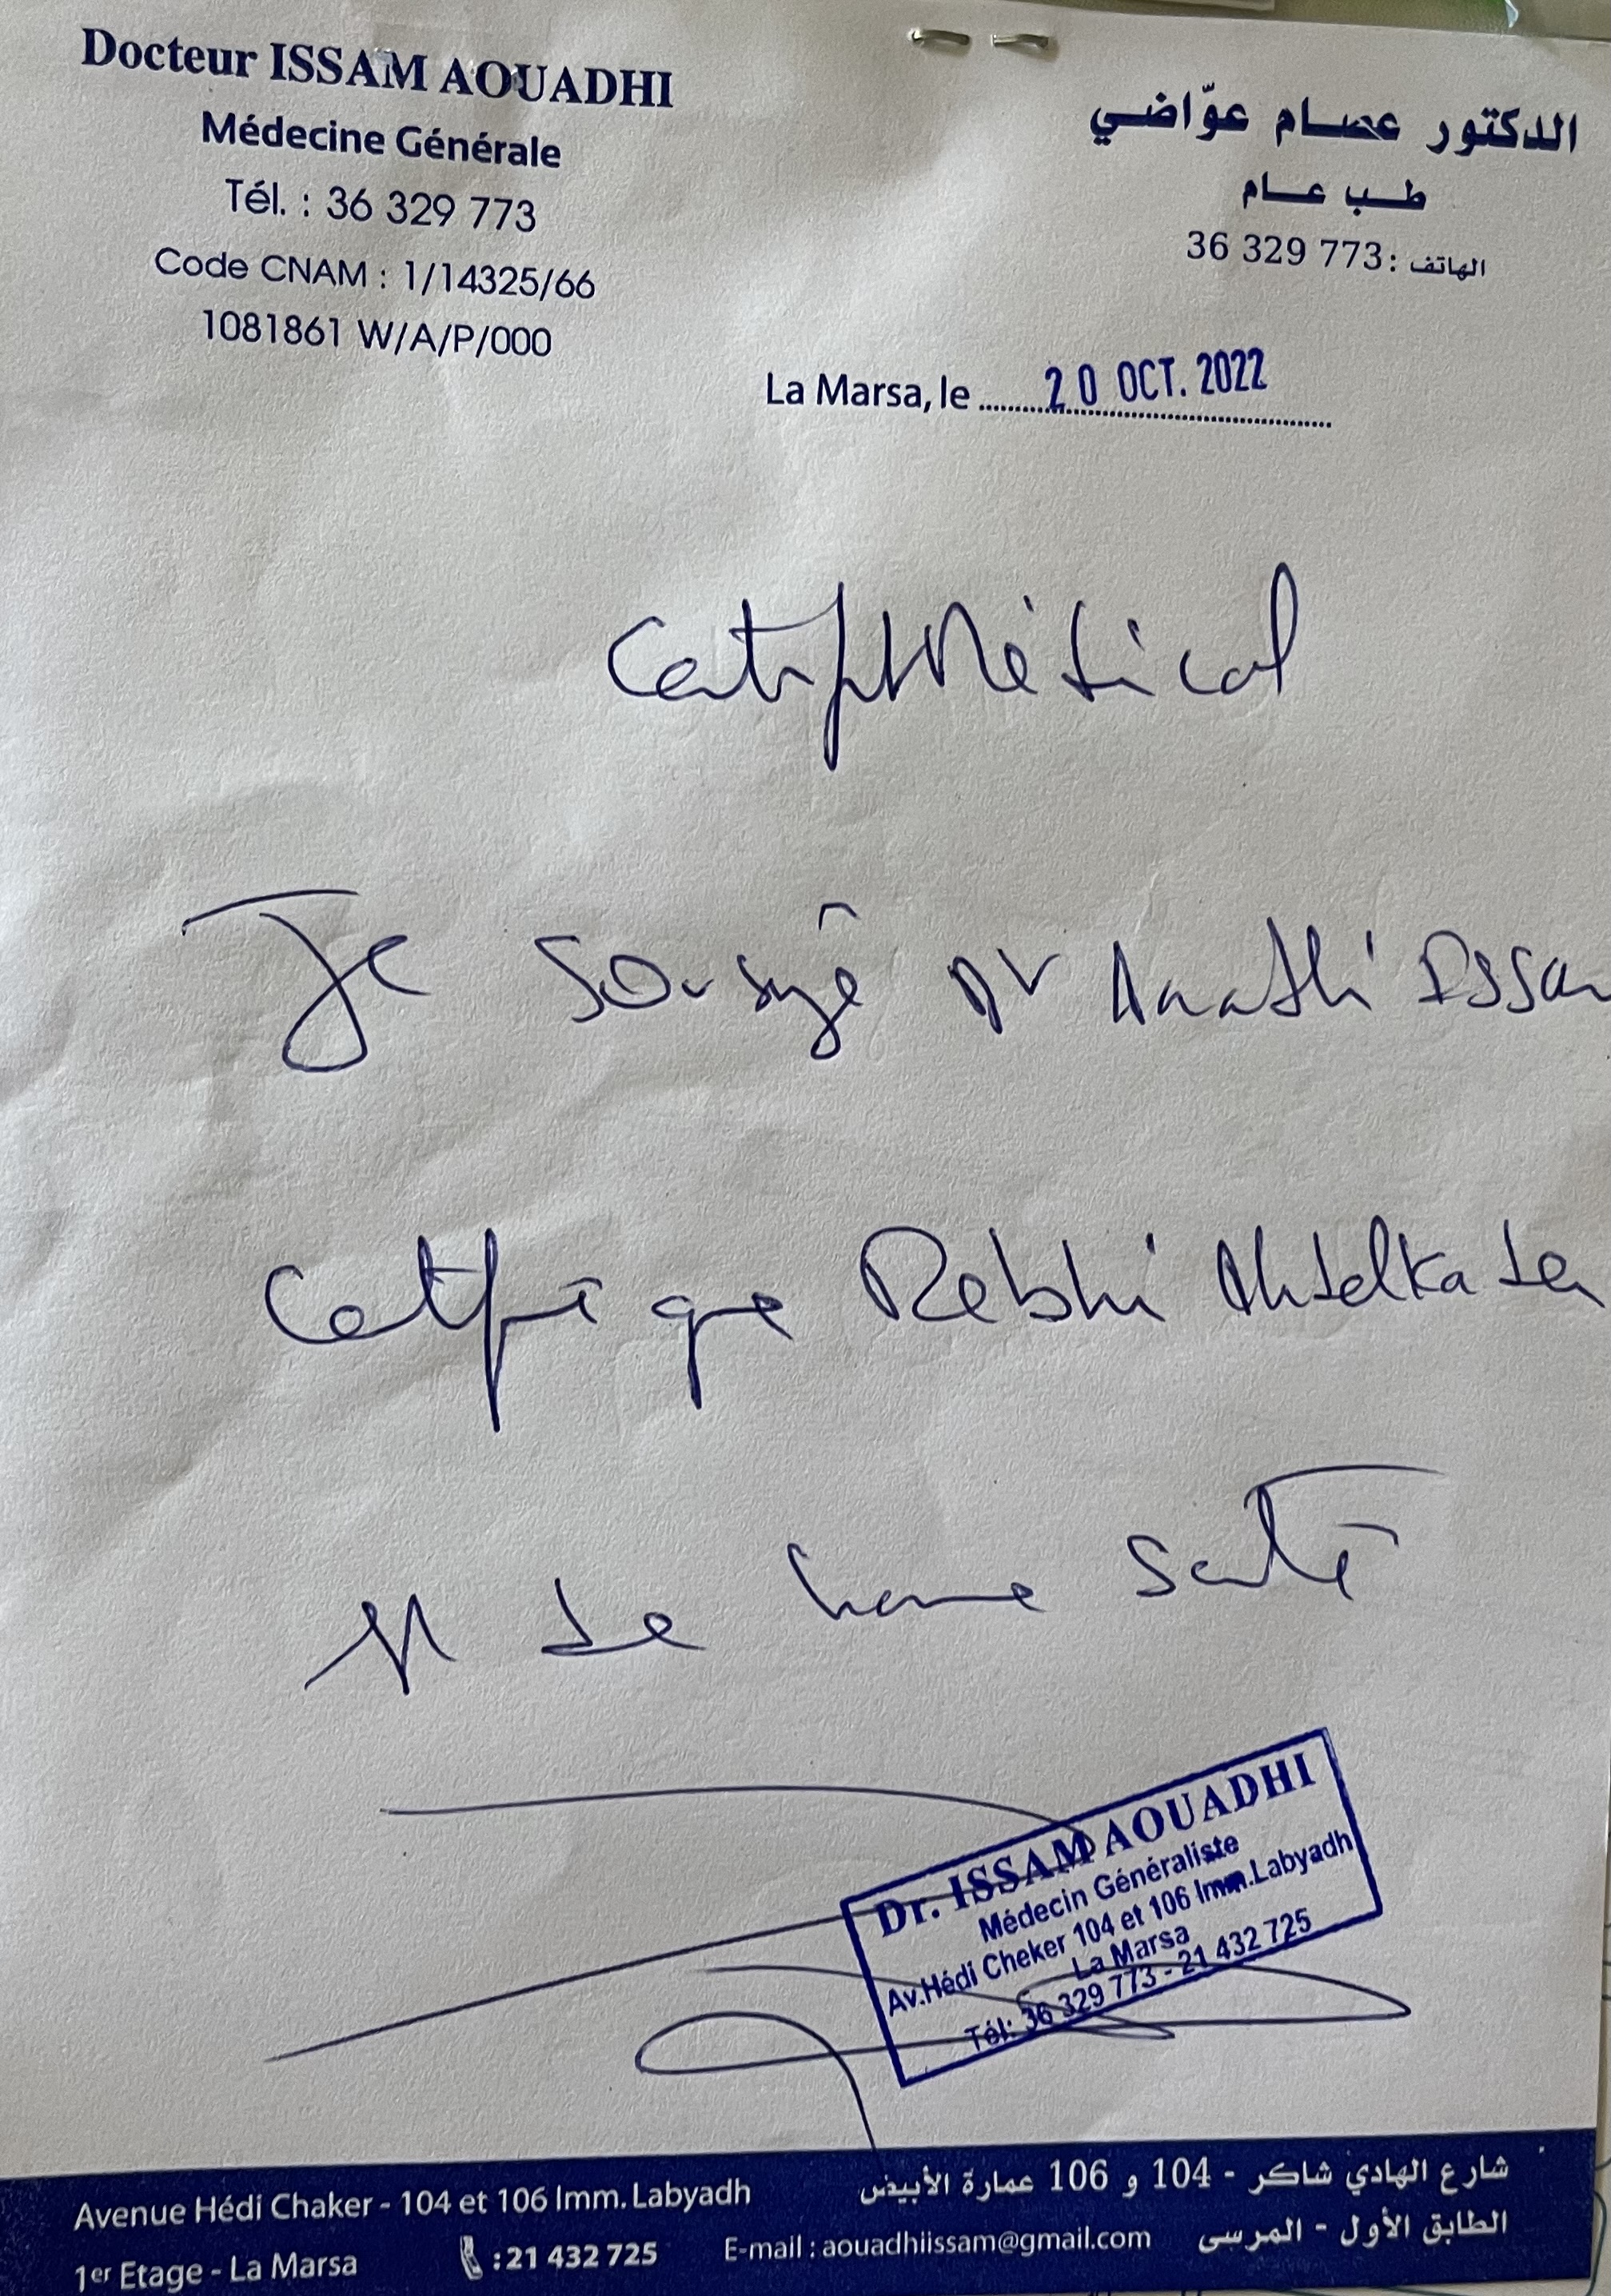 Docteur ISSAM AOUADHI
Médecine Générale
Tél. : 36 329 773
Code CNAM : 1/14325/66
1081861 W/A/P/000
الدكتور عصام عوّاضي
طب عام
الهاتف : 36 329 773
La Marsa, le 20 OCT. 2022
Certif Médical
Je soussigné Dr Aouadhi Issam
Certifie que Rebhi Abdelkader
est de bonne santé
Dr. ISSAM AOUADHI
Médecin Généraliste
Av.Hédi Cheker 104 et 106 Imm.Labyadh
La Marsa
Tél: 36 329 773 - 21 432 725
Avenue Hédi Chaker - 104 et 106 Imm. Labyadh
1er Etage - La Marsa : 21 432 725 E-mail : aouadhiissam@gmail.com
شارع الهادي شاكر - 104 و 106 عمارة الأبيض
الطابق الأول - المرسى